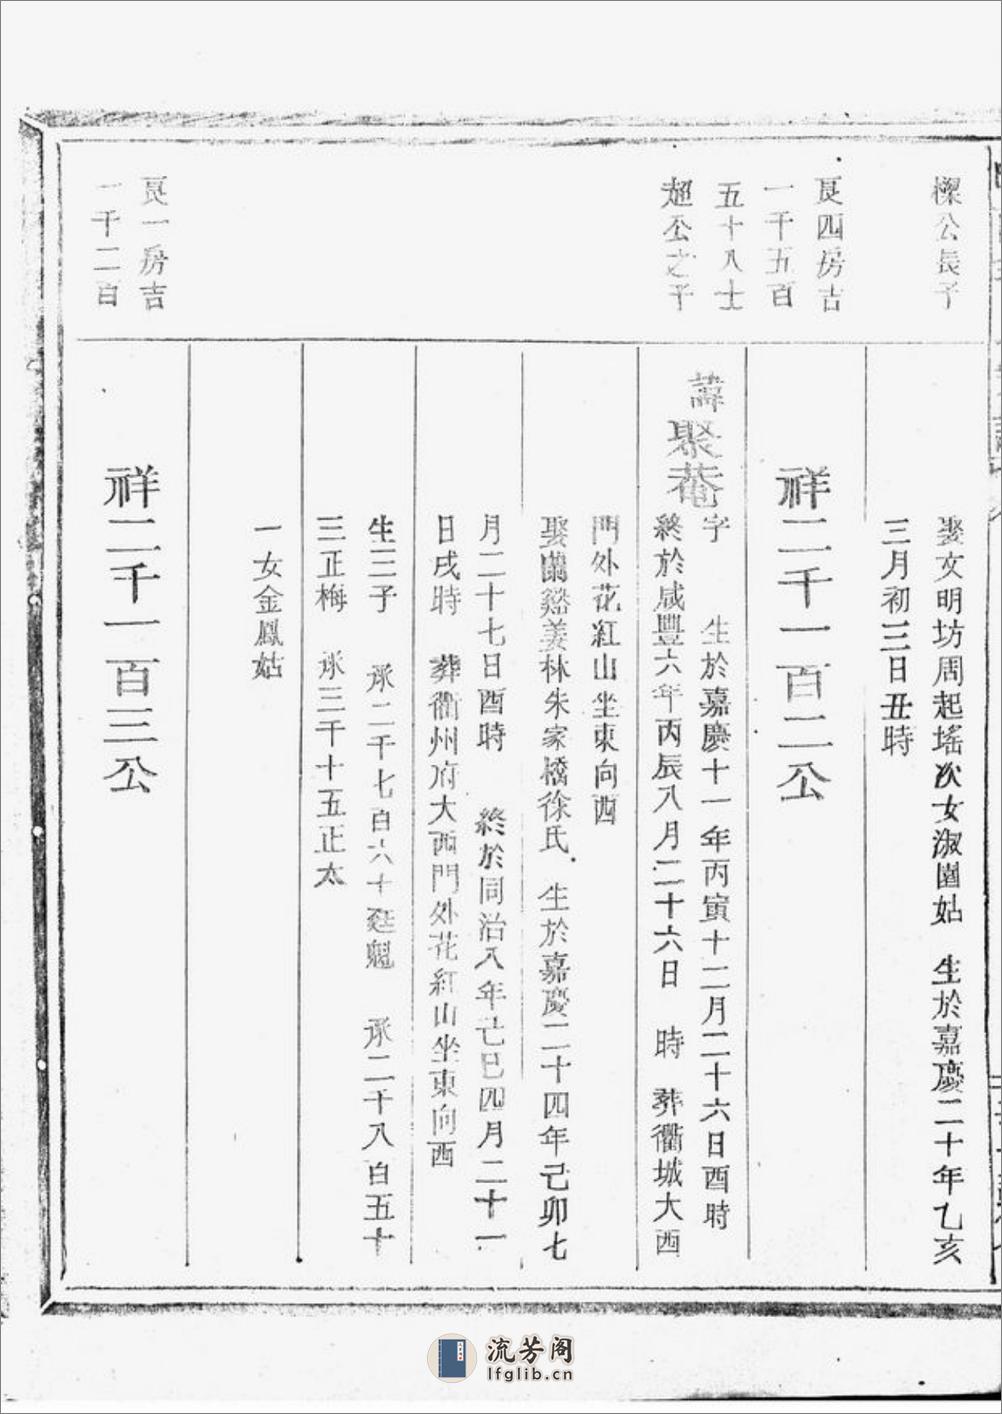 樑公長子
娶文明坊周起瑤次女淑園姑　生於嘉慶二十年乙亥
三月初三日丑時
良四房吉
一千五百
五十八士
超公之子
祥二千一百二公
諱聚菴
字　　生於嘉慶十一年丙寅十二月二十六日酉時
終於咸豐六年丙辰八月二十六日　時　葬衢城大西
門外花紅山坐東向西
娶蘭谿姜林朱家橋徐氏　生於嘉慶二十四年己卯七
月二十七日酉時　終於同治八年己巳四月二十一
日戌時　葬衢州府大西門外花紅山坐東向酉
生三子　承二千七百六十廷魁　承二千八百五十
三正梅　承三千十五正太
一女金鳳姑
良一房吉
一千二百
祥二千一百三公
流芳阁
lfglib.cn